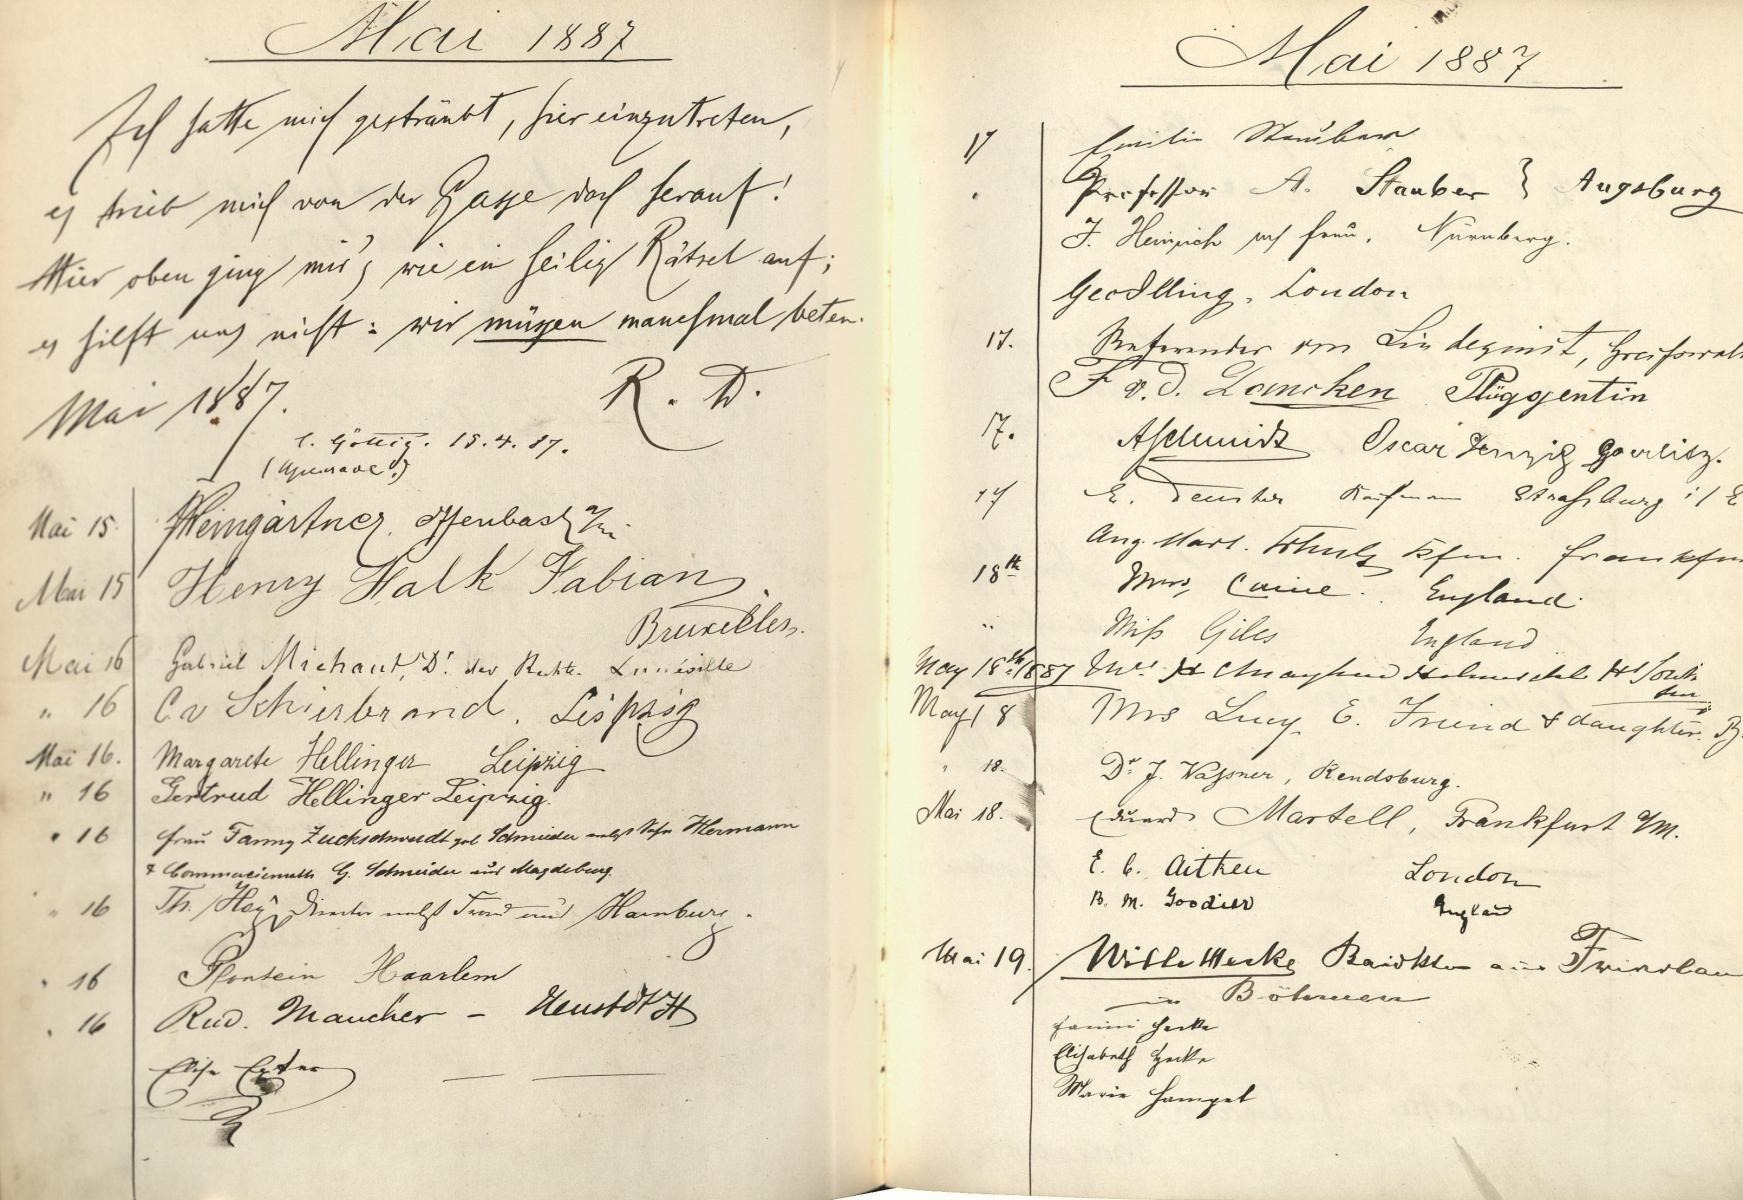 Mai 1887
Ich hatte mich gesträubt, hier einzutreten,
es trieb mich von der Gasse doch herauf!
Hier oben ging mir's wie ein heilig Rätsel auf;
es hilft uns nicht: wir müssen manchmal beten.
Mai 1887. R. D.
15.4.87.
Mai 15. Weingärtner. Offenbach a/M.
Mai 15 Henry Halk Fabian
Bruxelles.
Mai 16 Gabriel Michaut, Dr. der Rechte. Lunéville
" 16 C v Schierbrand. Leipzig
Mai 16. Margarete Hellinger Leipzig
" 16 Gertrud Hellinger Leipzig.
" 16 Frau Fanny Zuckschwerdt geb Schneider nebst Sohn Hermann
& Commercienrath G. Schneider aus Magdeburg.
" 16 Th. Hay, Director nebst Hamburg.
" 16 Haarlem
" 16 Rud. Maucher - Neustdt
Elise
Mai 1887
17 Emilie Stauber
" Professor A. Stauber } Augsburg
J. Heinrich mit Frau, Nürnberg.
London
17. Referendar von Lindequist, Greifswald
F v. d. Lancken Plüggentin
17. A Schmidt Oscar Görlitz.
17 E. Kaufmann Strassburg i/E
Aug. Mart. Schulz Kfm. Frankfu
18th Mrs, Caine. England.
" Miss Giles England
May 18th 1887 Mrs.
May 18 Mrs Lucy E. Friend & daughter.
" 18. Dr. J. Wassner, Rendsburg.
Mai 18. Eduard Martell, Frankfurt a/M.
E. C. Aitken London
B. M. Goodier England
Mai 19. Wilh Hecke aus
in Böhmen
Fanni Hecke
Elisabeth Hecke
Marie Hampel